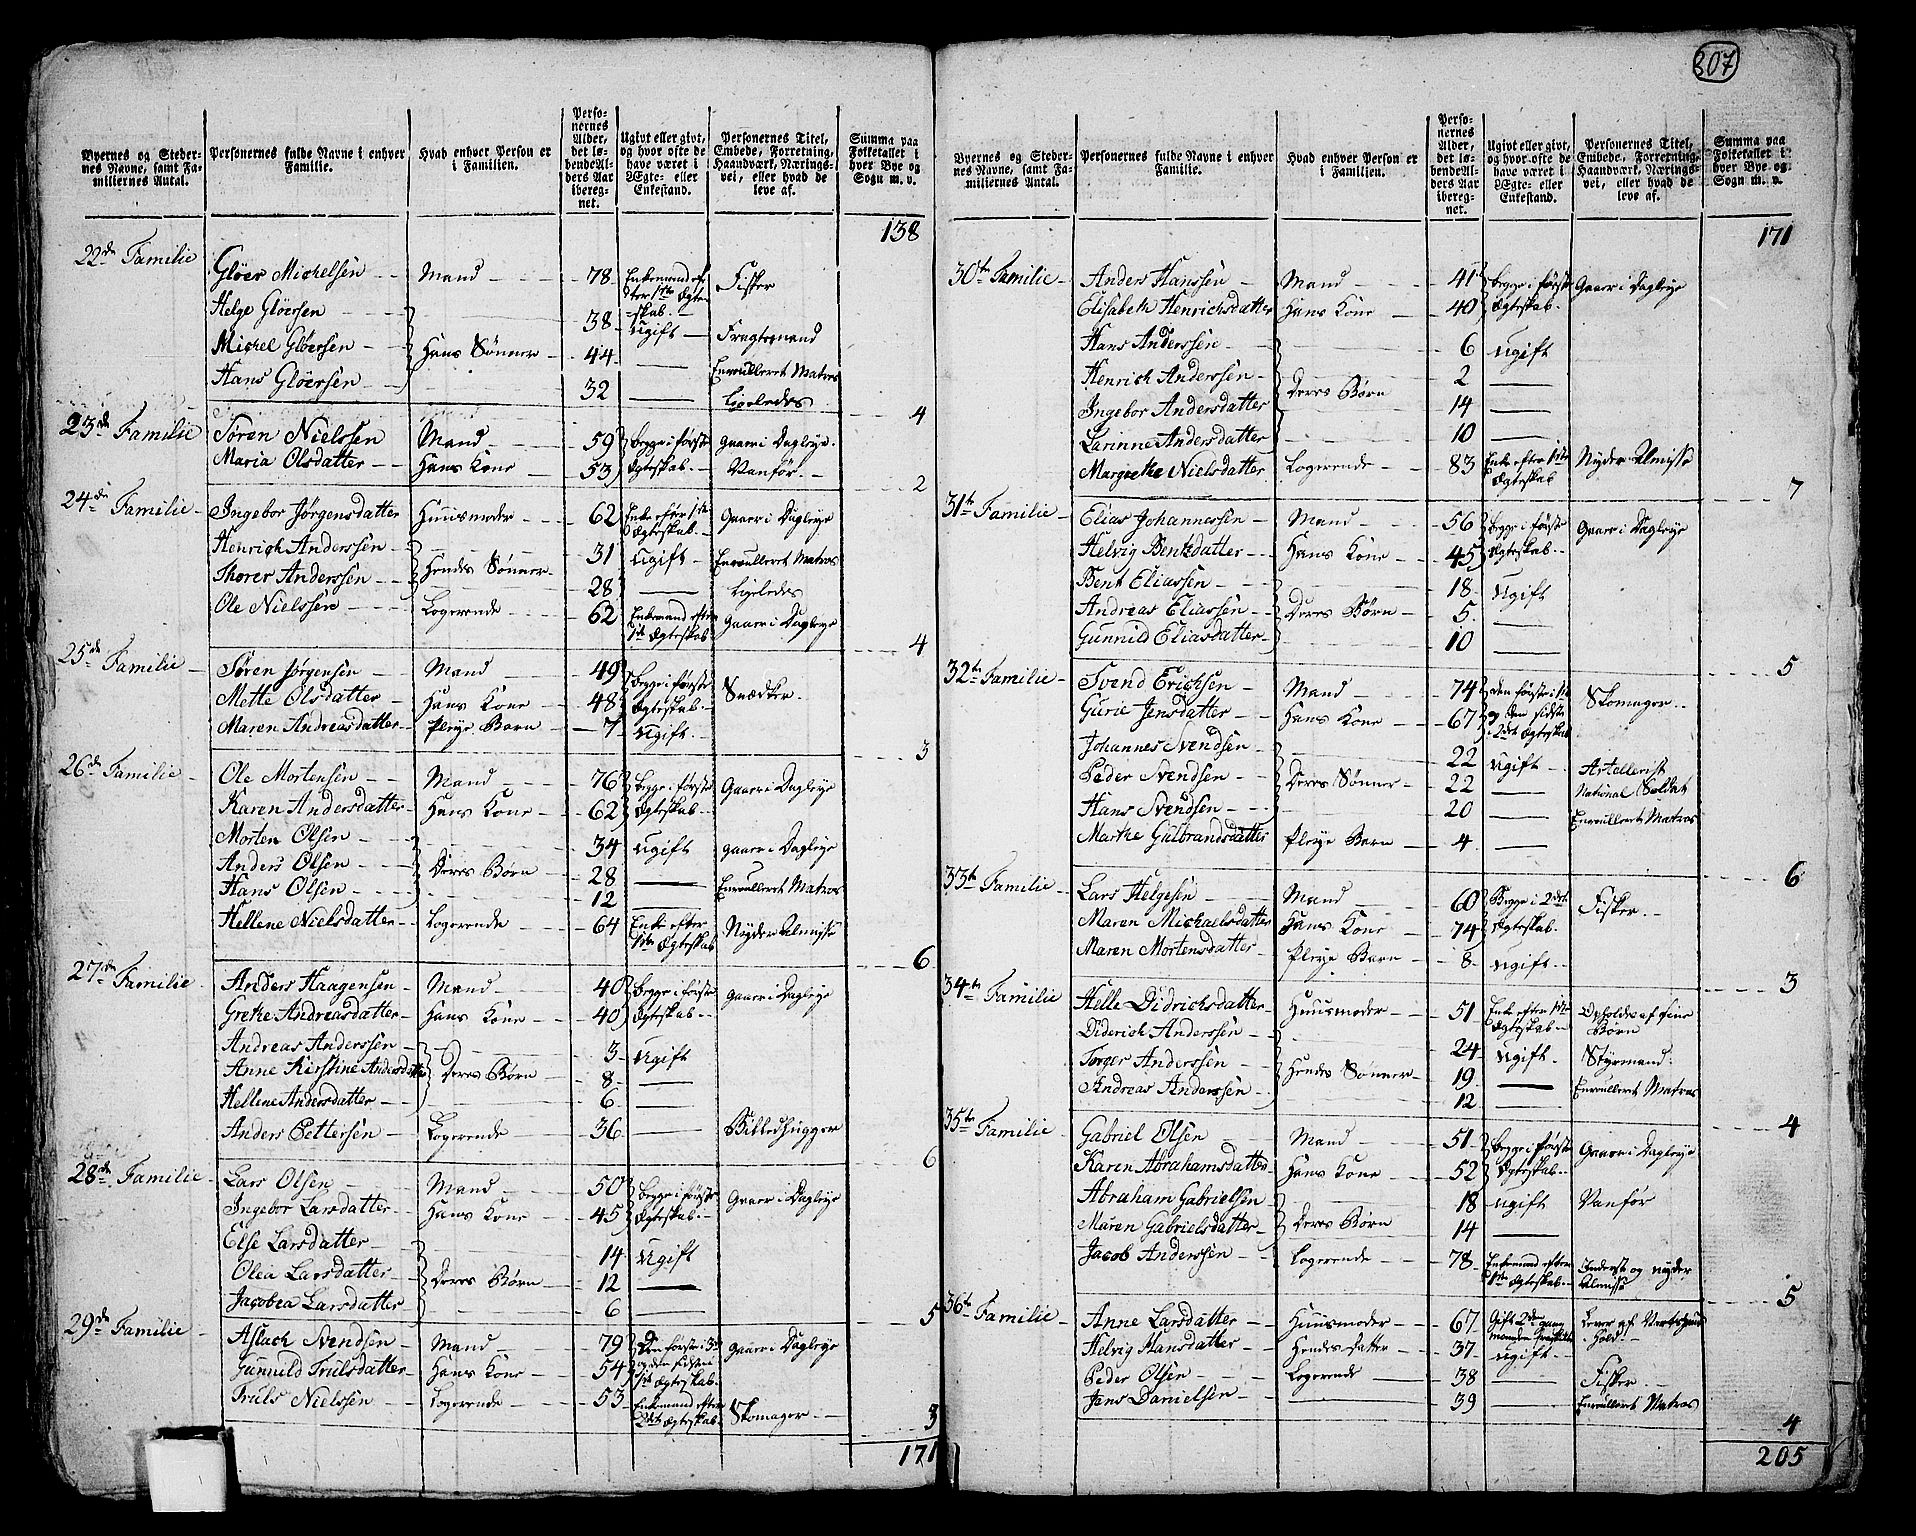 307
Byernes og Stedernes Navne, samt Familiernes Antal.
Personernes fulde Navne i enhver Familie.
Hvad enhver Person er i Familien.
Personernes Alder, det løbende Alders Aar iberegnet.
Ugivt eller givt, og hvor ofte de have været i Ægte- eller Enkestand.
Personernes Titel, Embede, Forretning, Haandværk, Næringsvei, eller hvad de leve af.
Summa paa Folketallet i hver Bye og Sogn m. v.
138
22de Familie Glöer Michelsen Mand 78 Enkemand efter 1ste Ægteskab Fisker
Helge Glöersen 38 Ugift Fragtemand
Michel Glöersen Hans Sønner 44 — Enroulleret Matros
Hans Glöersen 32 — Ligeledes
4
23de Familie Sören Nielssen Mand 59 Begge i første Gaaer i Dagleye
Maria Olsdatter Hans Kone 53 Ægteskab Vanför
2
24de Familie Ingebor Jörgensdatter Huusmoder 62 Enke efter 1ste Ægteskab Gaaer i Dagleye
Henrich Anderssen 31 Ugift Enroulleret Matros
Thorer Anderssen Hendes Sønner 28 — Ligeledes
Ole Nielssen Logerende 62 Enkemand efter 1ste Ægteskab Gaaer i Dagleye
4
25de Familie Sören Jörgensen Mand 49 Begge i første Snedker
Mette Olsdatter Hans Kone 48 Ægteskab
Maren Andreasdatter Pleye Barn 7 Ugift
3
26de Familie Ole Mortensen Mand 76 Begge i første Gaaer i Dagleye
Karen Andersdatter Hans Kone 62 Ægteskab
Morten Olsen 34 Ugift Gaaer i Dagleye
Anders Olsen Deres Börn 28 — Enroulleret Matros
Hans Olsen 12
Hellene Nielsdatter Logerende 64 Enke efter 1ste Ægteskab Nyder Almisse
6
27de Familie Anders Haagensen Mand 40 Begge i første Gaaer i Dagleye
Grethe Andreasdatter Hans Kone 40 Ægteskab
Andreas Anderssen 3 Ugift
Anne Kirstine Andersdatter Deres Börn 8 —
Hellene Andersdatter 6 —
Anders Pettersen Logerende 36 — Billedhugger
6
28de Familie Lars Olsen Mand 50 Begge i første Gaaer i Dagleye
Ingebor Larsdatter Hans Kone 45 Ægteskab
Else Larsdatter 14 Ugift
Olea Larsdatter Deres Börn 12 —
Jacobea Larsdatter 6 —
5
29de Familie Aslach Svendsen Mand 79 Den første i 3die Gaaer i Dagleye
Gunnild Trulsdatter Hans Kone 54 og den sidste i 1ste Ægteskab
Truls Nielssen Logerende 53 Enkemand efter 2det Ægteskab Skomager
3
171
Byernes og Stedernes Navne, samt Familiernes Antal.
Personernes fulde Navne i enhver Familie.
Hvad enhver Person er i Familien.
Personernes Alder, det løbende Alders Aar iberegnet.
Ugivt eller givt, og hvor ofte de have været i Ægte- eller Enkestand.
Personernes Titel, Embede, Forretning, Haandværk, Næringsvei, eller hvad de leve af.
Summa paa Folketallet i hver Bye og Sogn m. v.
171
30te Familie Anders Hanssen Mand 41 Begge i første Gaaer i Dagleye
Elisabeth Henrichsdatter Hans Kone 40 Ægteskab
Hans Anderssen 6 Ugift
Henrich Anderssen 2 —
Ingebor Andersdatter Deres Börn 14 —
Larinne Andersdatter 10 —
Margrethe Nielsdatter Logerende 83 Enke efter 1ste Ægteskab Nyder Almisse
7
31te Familie Elias Johannessen Mand 56 Begge i første Gaaer i Dagleye
Helvig Bentsdatter Hans Kone 45 Ægteskab
Bent Eliassen 18 Ugift
Andreas Eliassen Deres Börn 5 —
Gunnild Eliasdatter 10 —
5
32te Familie Svend Erichsen Mand 74 Den første i 1ste Skomager
Gurie Jensdatter Hans Kone 67 og den sidste i 2det Ægteskab
Johannes Svendsen 22 Ugift Artellerist
Peder Svendsen Deres Sønner 22 — National Soldat
Hans Svendsen 20 — Enroulleret Matros
Marthe Gulbrandsdatter Pleye Barn 4 —
6
33te Familie Lars Helgesen Mand 60 Begge i 2det Fisker
Maren Michaelsdatter Hans Kone 74 Ægteskab
Maren Mortensdatter Pleye Barn 8 Ugift
3
34te Familie Helle Didrichsdatter Huusmoder 51 Enke efter 1ste Ægteskab Opholdes af sine Börn
Diderich Anderssen 24 Ugift Styrmand
Torger Anderssen Hendes Sønner 19 — Enroulleret Matros
Andreas Anderssen 12 —
4
35te Familie Gabriel Olsen Mand 51 Begge i første Gaaer i Dagleye
Karen Abrahamsdatter Hans Kone 52 Ægteskab
Abraham Gabrielsen 18 Ugift Vanför
Maren Gabrielsdatter Deres Börn 14 —
Jacob Anderssen Logerende 78 Enkemand efter 1ste Ægteskab Inderst og nyder Almisse
5
36te Familie Anne Larsdatter Huusmoder 67 Gift 2den Gang Lever af Vertshuushold
Helvig Hansdatter Hendes Datter 37 Ugift
Peder Olsen Logerende 38 — Fisker
Jens Danielsen — 39 — Enroulleret Matros
4
205